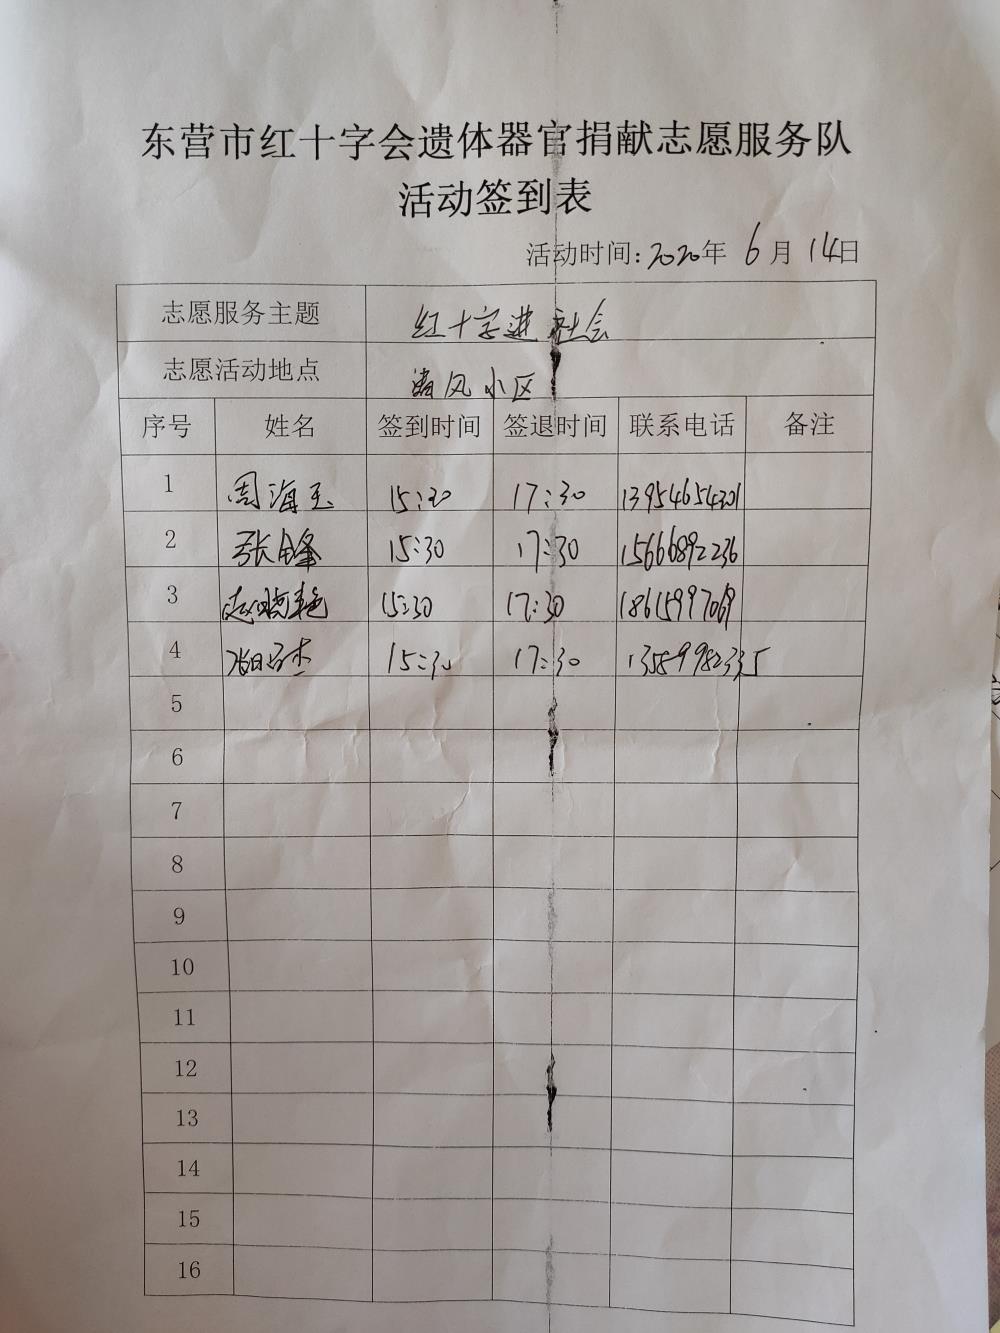 东营市红十字会遗体器官捐献志愿服务队
活动签到表
活动时间:2020年 6月 14日
志愿服务主题 红十字进社会
志愿活动地点 清风小区
序号 姓名 签到时间 签退时间 联系电话 备注
1 周海玉 15:30 17:30 13954654301
2 张锋 15:30 17:30 15666892236
3 赵晓艳 15:30 17:30 18615997069
4 15:30 17:30 13589982335
5
6
7
8
9
10
11
12
13
14
15
16